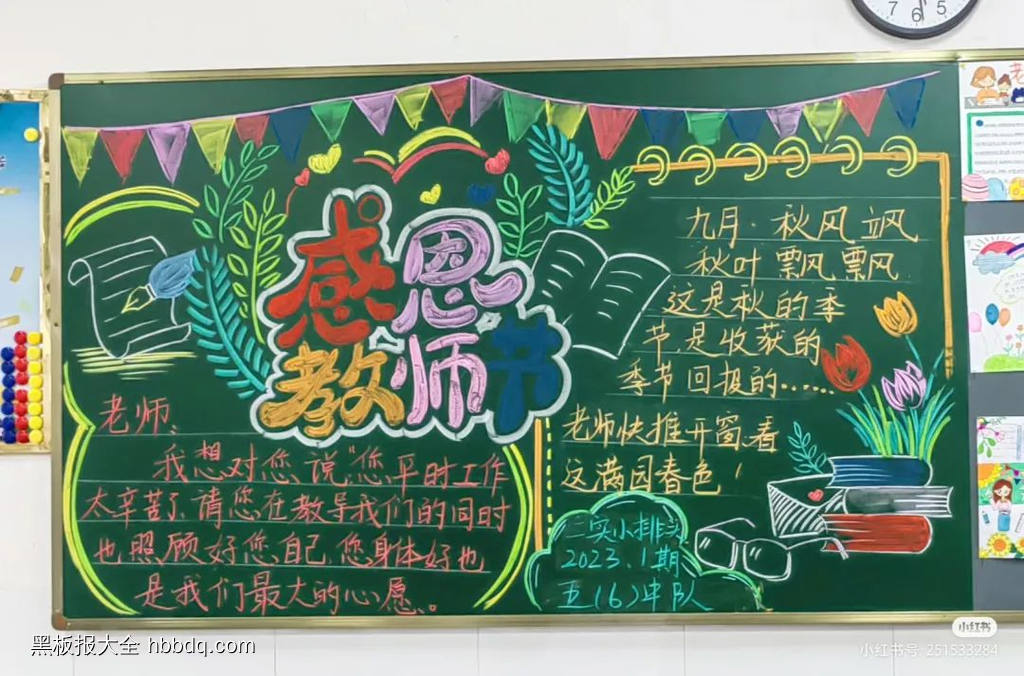 7 6 5
感恩
教师节
九月.秋风飒
秋叶飘飘
这是秋的季
节是收获的
季节回报的.....
老师快推开窗看
这满园春色!
老师、
我想对您说“您平时工作
太辛苦了、请您在教导我们的同时
也照顾好您自己、您身体好也
是我们最大的心愿。
二实小排头
2023.1期
五(6)中队
黑板报大全 hbbdq.com
小红书
小红书号: 251533284